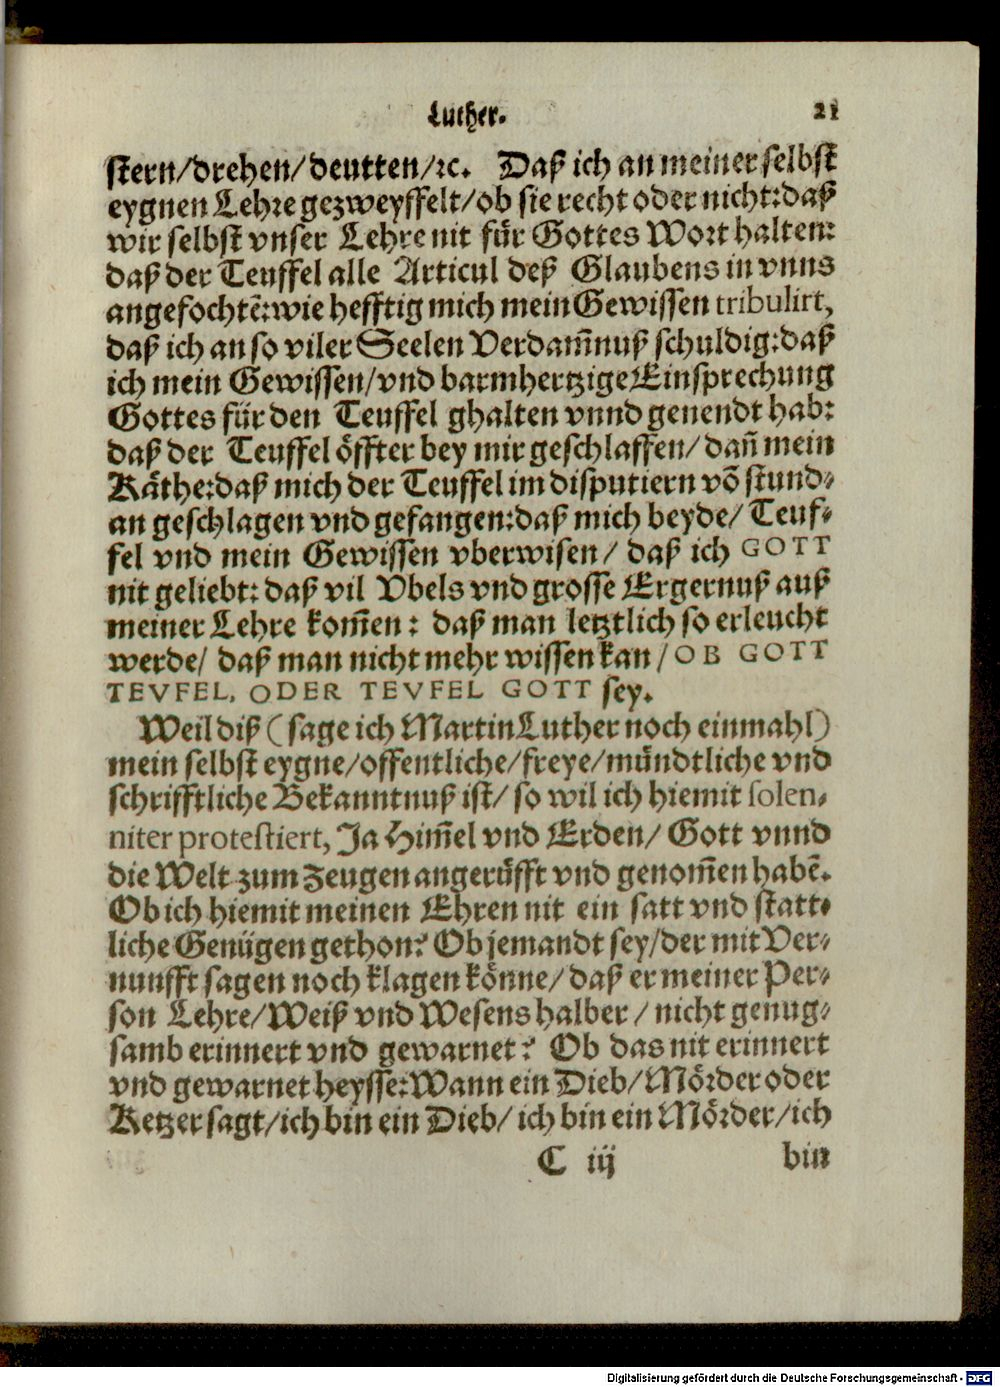 Luther. 21
stern/drehen/deutten/ꝛc. Daß ich an meiner selbst
eygnen Lehre gezweyffelt/ob sie recht oder nicht:daß
wir selbst vnser Lehre nit für Gottes Wort halten:
daß der Teuffel alle Articul deß Glaubens in vnns
angefochtẽ:wie hefftig mich mein Gewissen tribulirt,
daß ich an so viler Seelen Verdam̃nuß schuldig:daß
ich mein Gewissen/vnd barmhertzige Einsprechung
Gottes für den Teuffel ghalten vnnd genendt hab:
daß der Teuffel öffter bey mir geschlaffen/dañ mein
Käthe:daß mich der Teuffel im disputiern võ stund-
an geschlagen vnd gefangen:daß mich beyde/ Teuf-
fel vnd mein Gewissen vberwisen/ daß ich GOTT
nit geliebt: daß vil Vbels vnd grosse Ergernuß auß
meiner Lehre kom̃en: daß man letztlich so erleucht
werde/ daß man nicht mehr wissen kan/OB GOTT
TEVFEL, ODER TEVFEL GOTT sey.
Weil diß (sage ich Martin Luther noch einmahl)
mein selbst eygne/offentliche/freye/mündtliche vnd
schrifftliche Bekanntnuß ist/ so wil ich hiemit solen-
niter protestiert, Ja Him̃el vnd Erden/ Gott vnnd
die Welt zum Zeugen angerüfft vnd genom̃en habẽ.
Ob ich hiemit meinen Ehren nit ein satt vnd statt-
liche Genügen gethon? Ob jemandt sey/der mit Ver-
nunfft sagen noch klagen könne/daß er meiner Per-
son Lehre/Weiß vnd Wesens halber/ nicht genug-
samb erinnert vnd gewarnet? Ob das nit erinnert
vnd gewarnet heysse:Wann ein Dieb/Mörder oder
Ketzer sagt/ich bin ein Dieb/ ich bin ein Mörder/ich
C iij bin
Digitalisierung gefördert durch die Deutsche Forschungsgemeinschaft - DFG